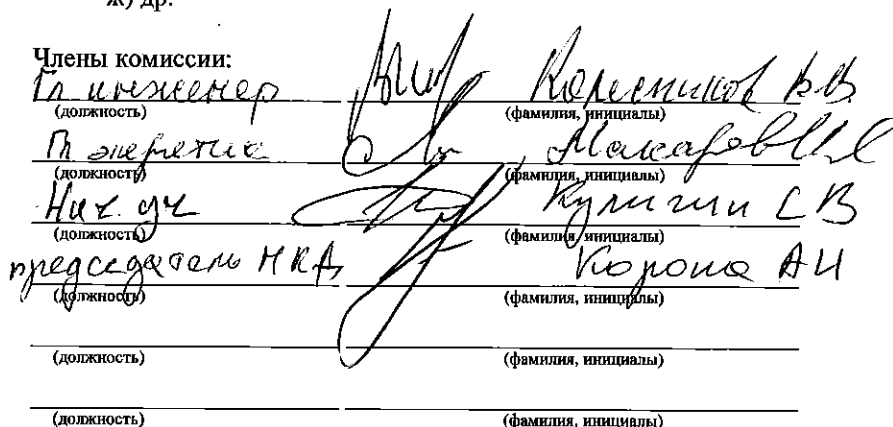 ж) др.
Члены комиссии:
Гл инженер Колесников В.В.
(должность) (фамилия, инициалы)
Гл энергетик Макаров
(должность) (фамилия, инициалы)
Нач Кулигин С В
(должность) (фамилия, инициалы)
председатель НКД Корона АИ
(должность) (фамилия, инициалы)
(должность) (фамилия, инициалы)
(должность) (фамилия, инициалы)